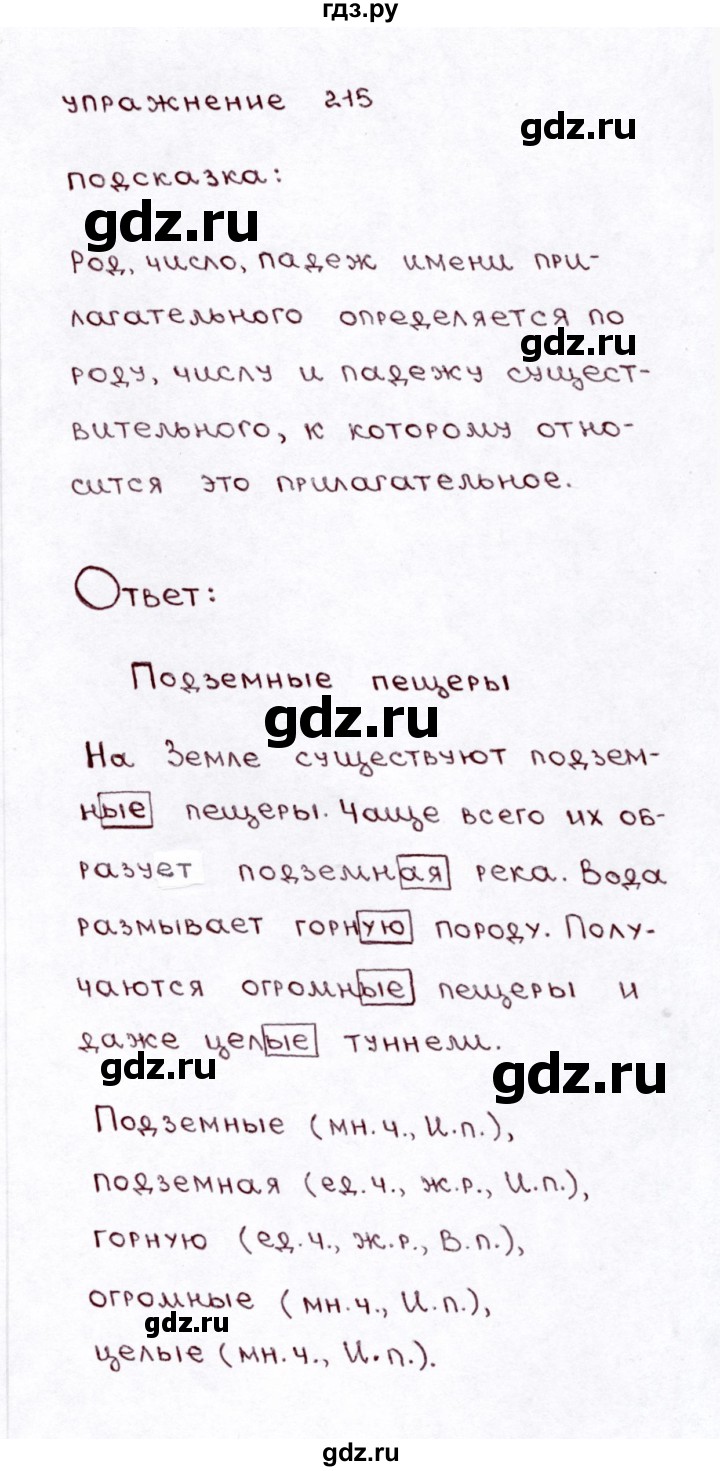 гдз.ру
упражнение 215
gdz.ru
подсказка:
gdz.ru
Род, число, падеж имени при-
лагательного определяется по
gdz.ru
роду, числу и падежу сущест-
вительного, к которому отно-
сится это прилагательное.
Ответ:
Подземные пещеры
gdz.ru
На Земле существуют подзем-
ные пещеры. Чаще всего их об-
разует подземная река. Вода
размывает горную породу. Полу-
чаются огромные пещеры и
даже целые туннели.
gdz.ru
gdz.ru
Подземные (мн.ч., И.п.),
подземная (ед.ч., ж.р., И.п.),
горную (ед.ч., ж.р., В.п.),
огромные (мн.ч., И.п.),
gdz.ru
целые (мн.ч., И.п.).
gdz.ru